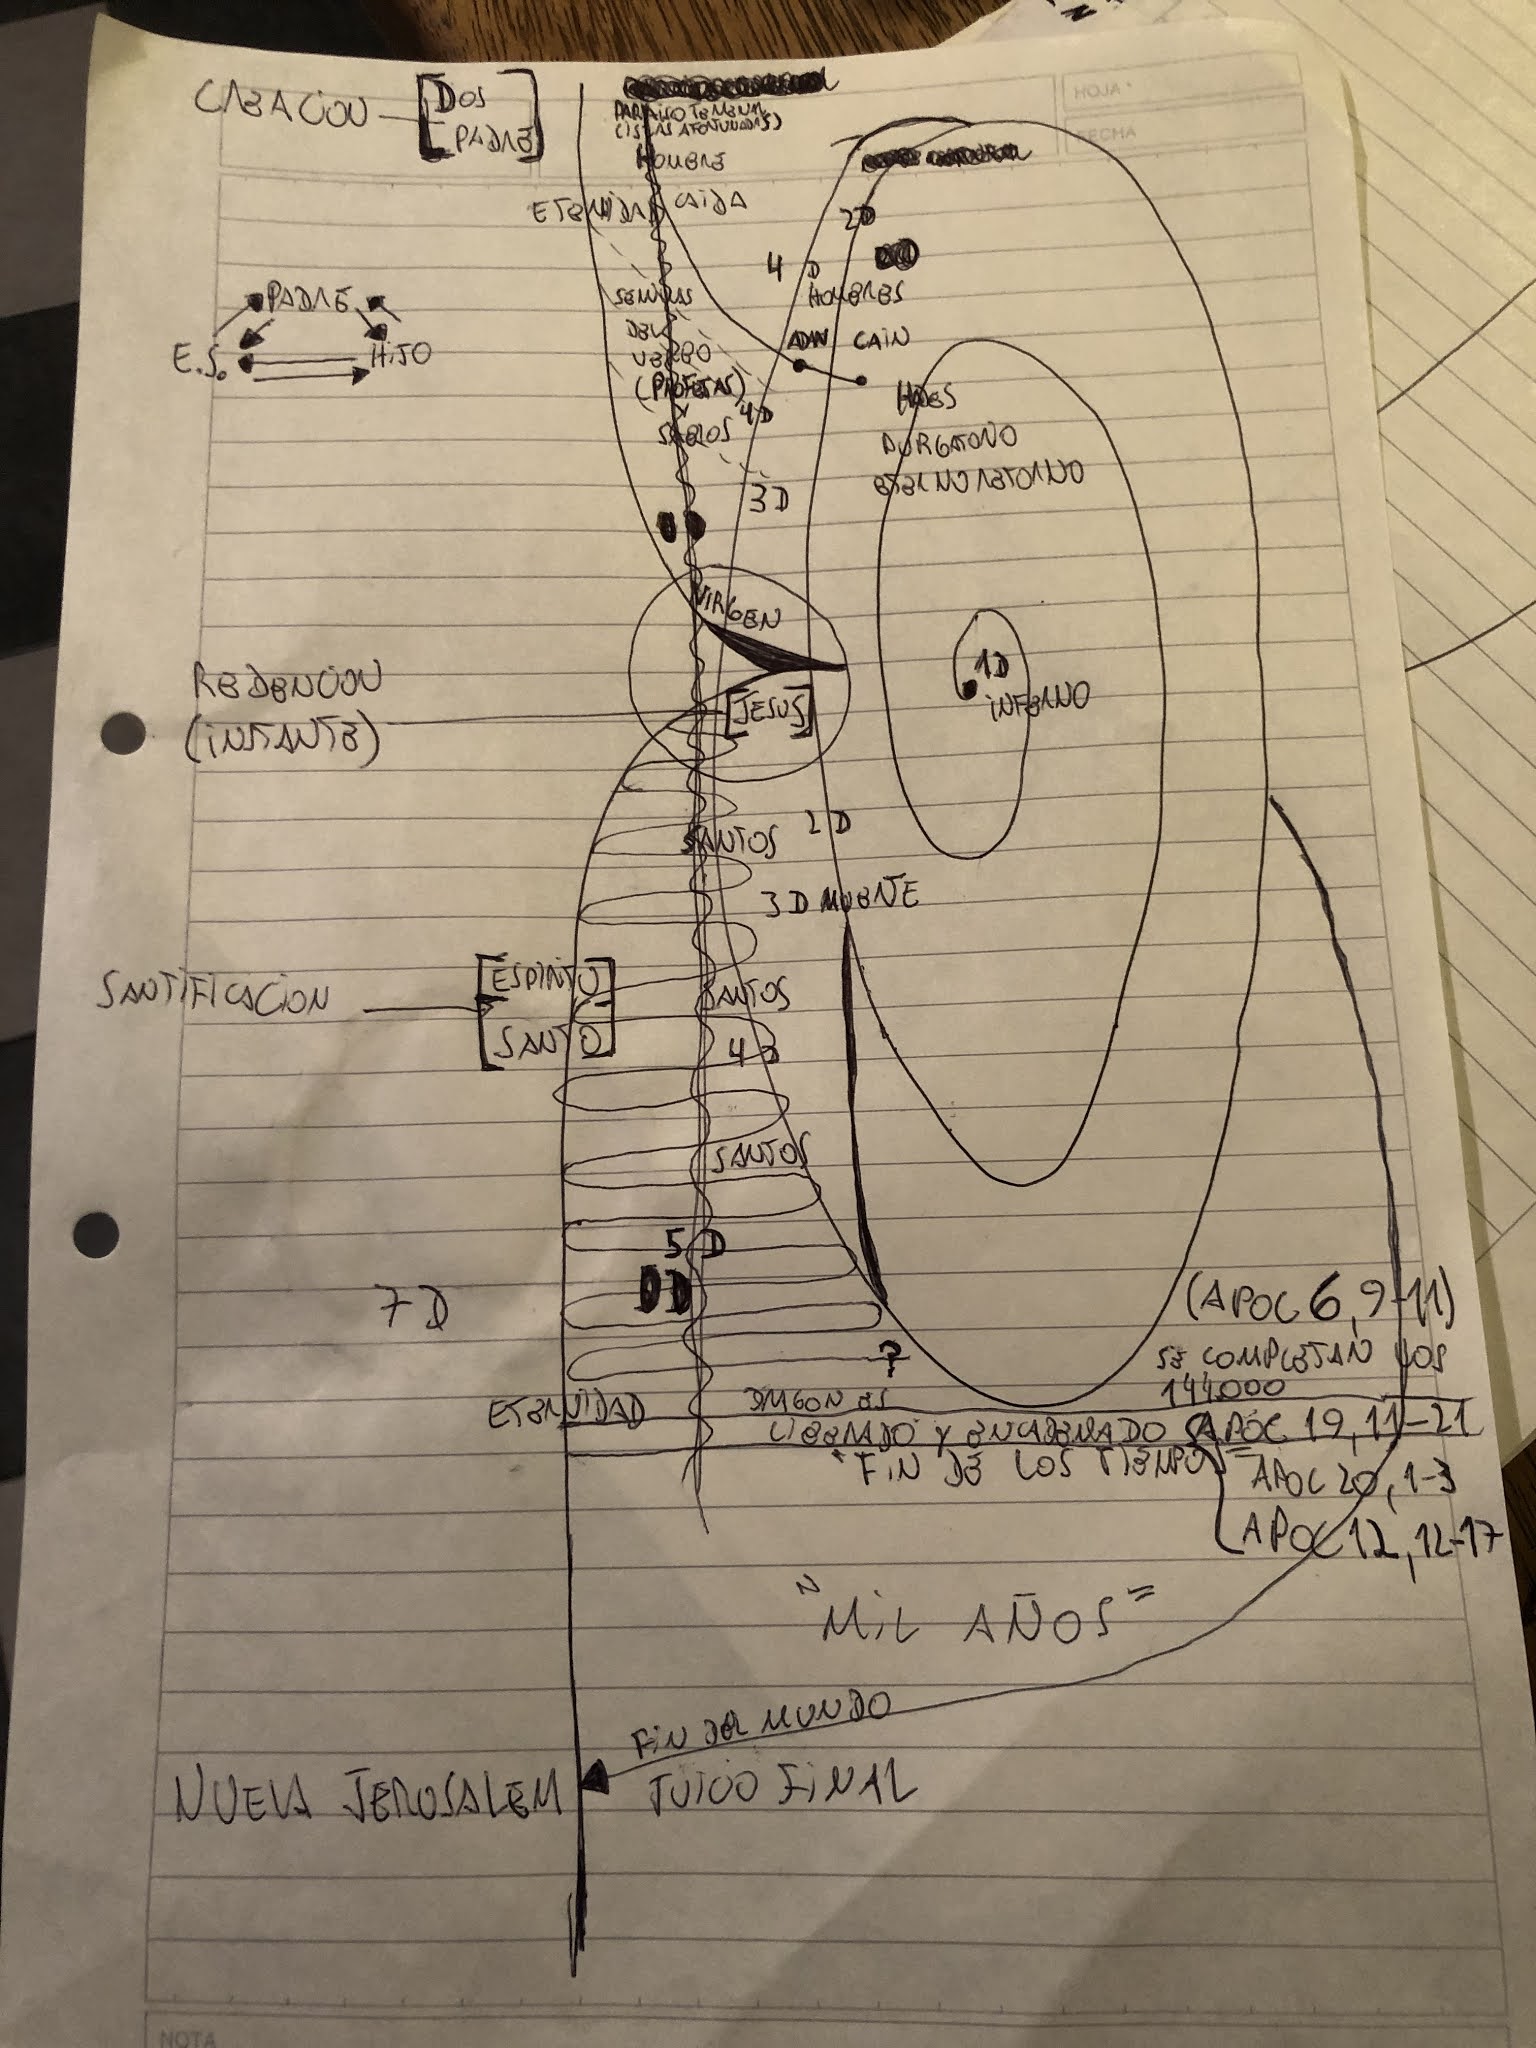 HOJA
FECHA
CREACION
DOS
PADRE
PARAISO TERRENAL
(ISLAS AFORTUNADAS)
HOMBRE
ETERNIDAD
CAIDA
2D
4D
HOMBRES
PADRE
E.S.
HIJO
SEMILLAS
DEL
VERBO
(PROFETAS)
SABIOS
ADAN
CAIN
4D
HADES
PURGATORIO
ETERNO RETORNO
3D
VIRGEN
1D
INFIERNO
REDENCION
(INSTANTE)
[JESUS]
SANTOS
2D
3D MUERTE
SANTIFICACION
[ESPIRITU
SANTO]
SANTOS
4D
SANTOS
5D
7D
(APOC 6, 9-11)
SE COMPLETAN LOS
144.000
?
ETERNIDAD
DRAGON ES
LIBERADO Y ENCADENADO
APOC 19, 11-21
"FIN DE LOS TIEMPOS"
APOC 20, 1-3
APOC 12, 12-17
"MIL AÑOS"
FIN DEL MUNDO
NUEVA JERUSALEM
JUICIO FINAL
NOTA